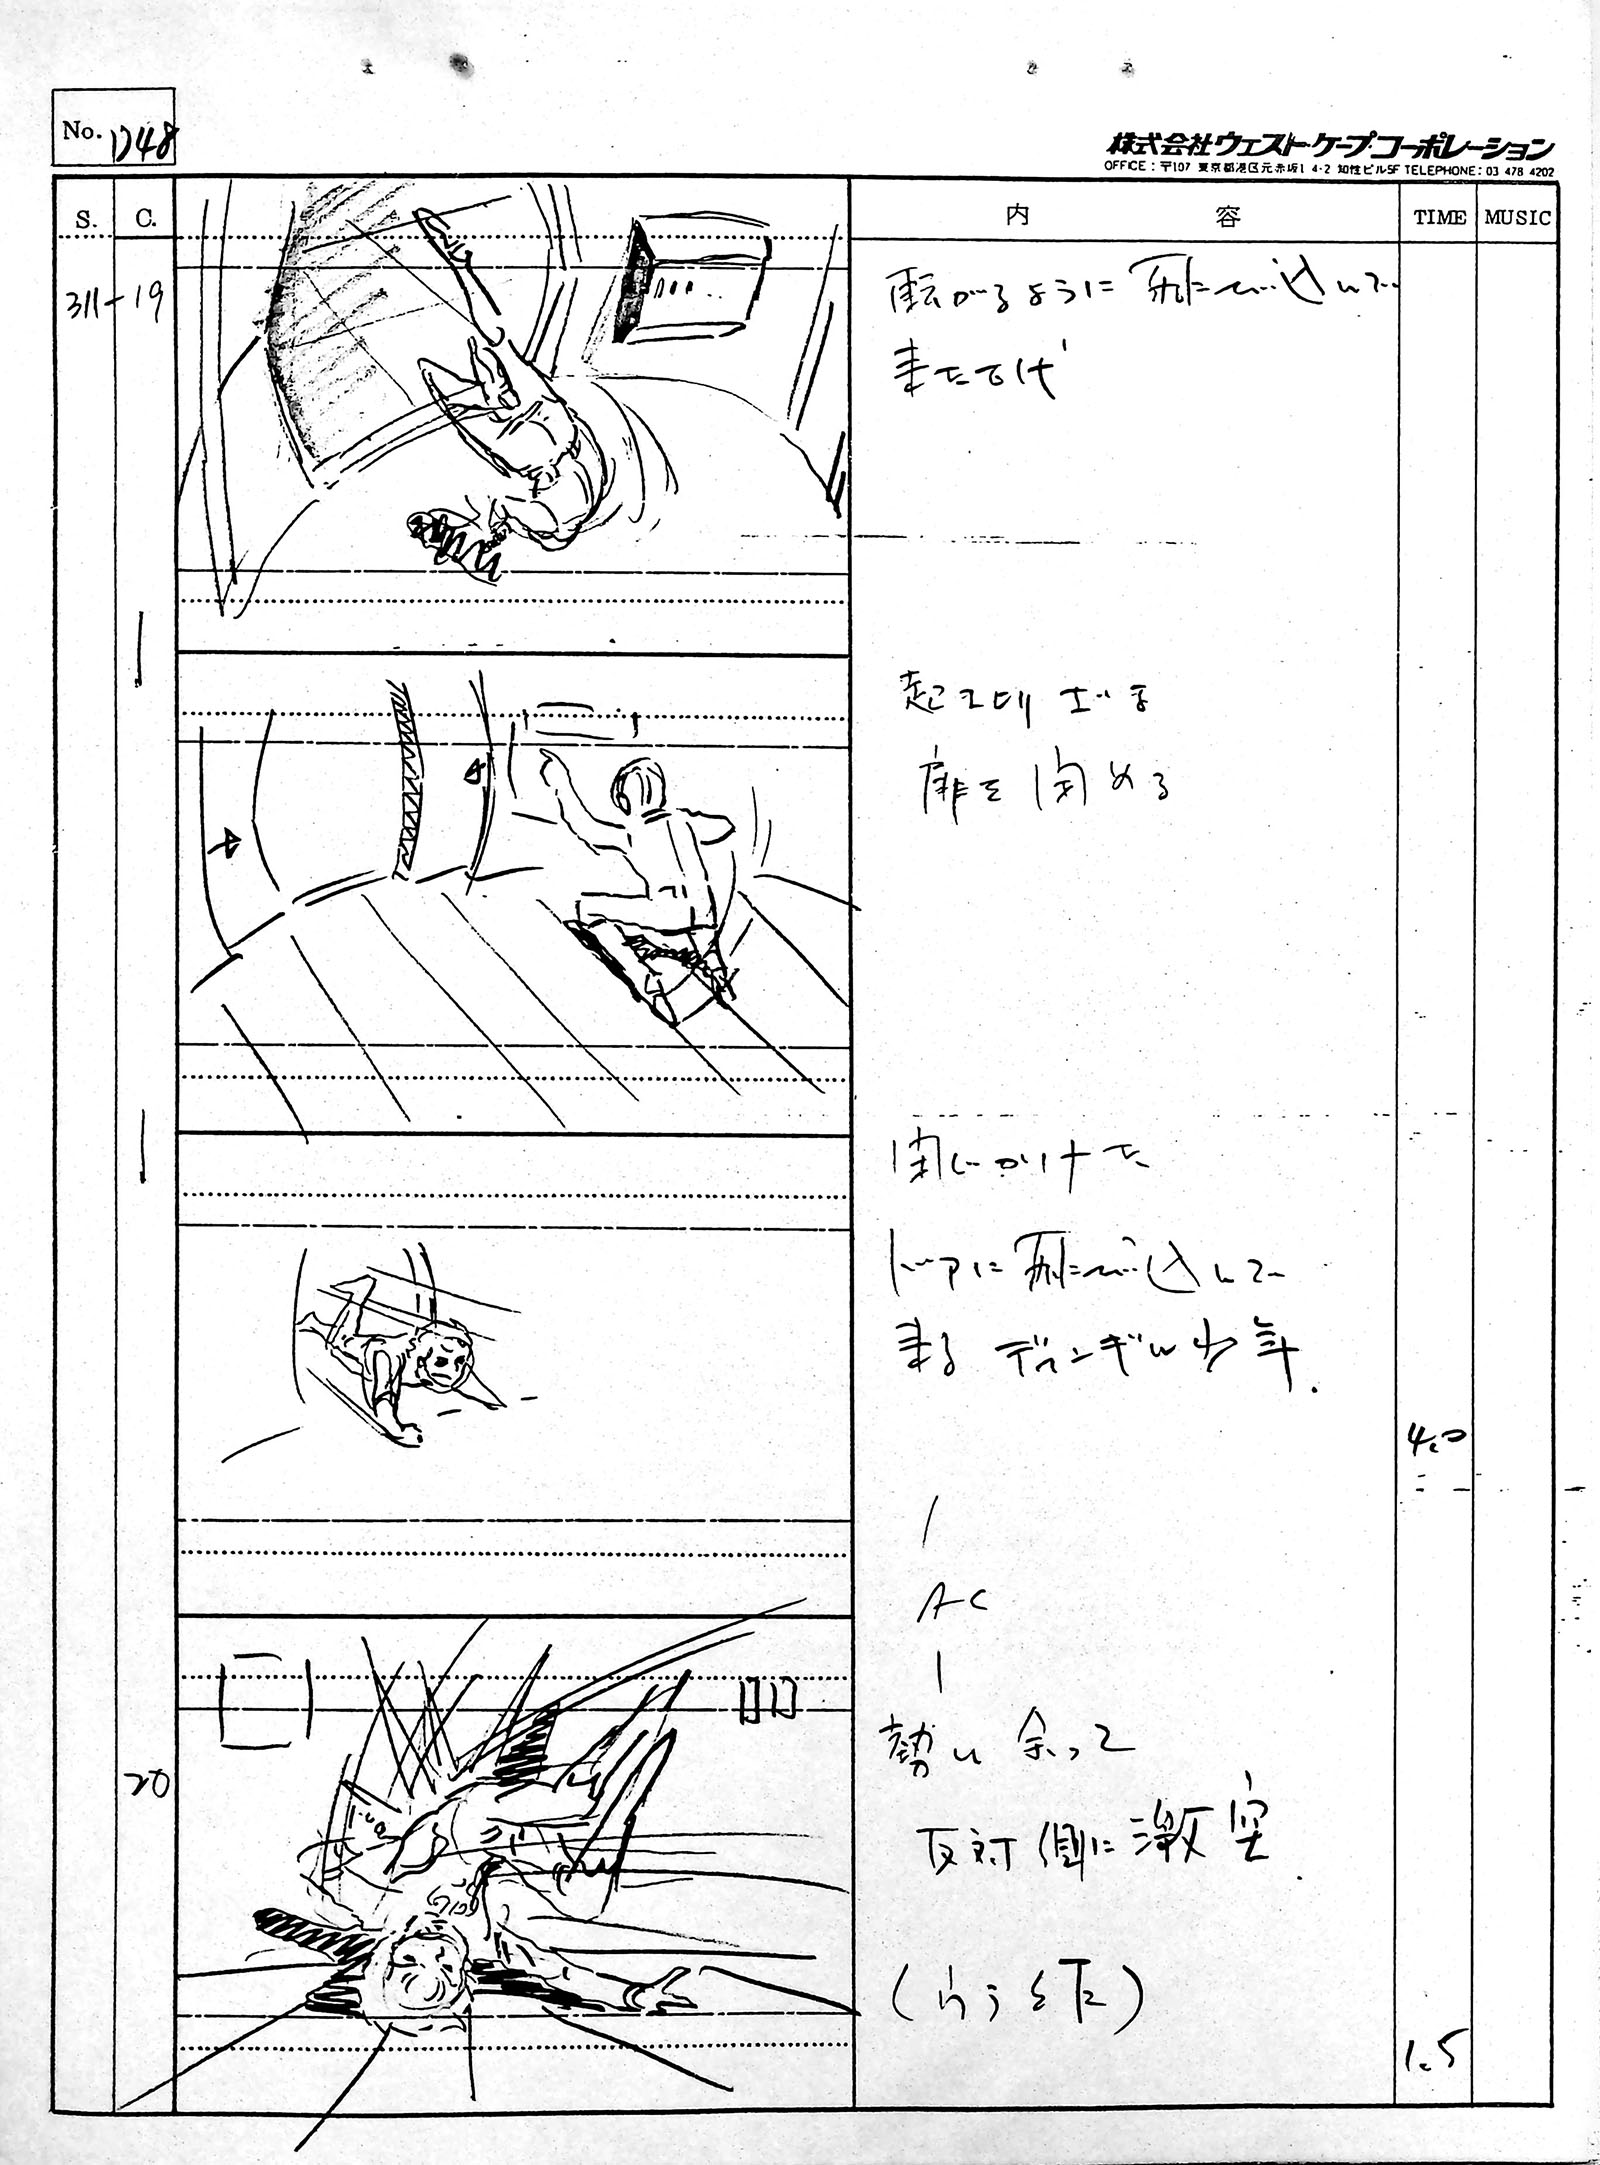 No. 1748
株式会社ウエスト・ケープ・コーポレーション
OFFICE：〒107 東京都港区元赤坂1 4-2 知性ビル5F TELEPHONE：03 478 4202
S. C. 内 容 TIME MUSIC
311-19
転がるように飛び込んで
来た古代
起き上りざま
扉を閉める
閉じかけた
ドアに飛び込んで
来る ディンギル少年.
4.0
AC
20
勢い余って
反対側に激突
1.5